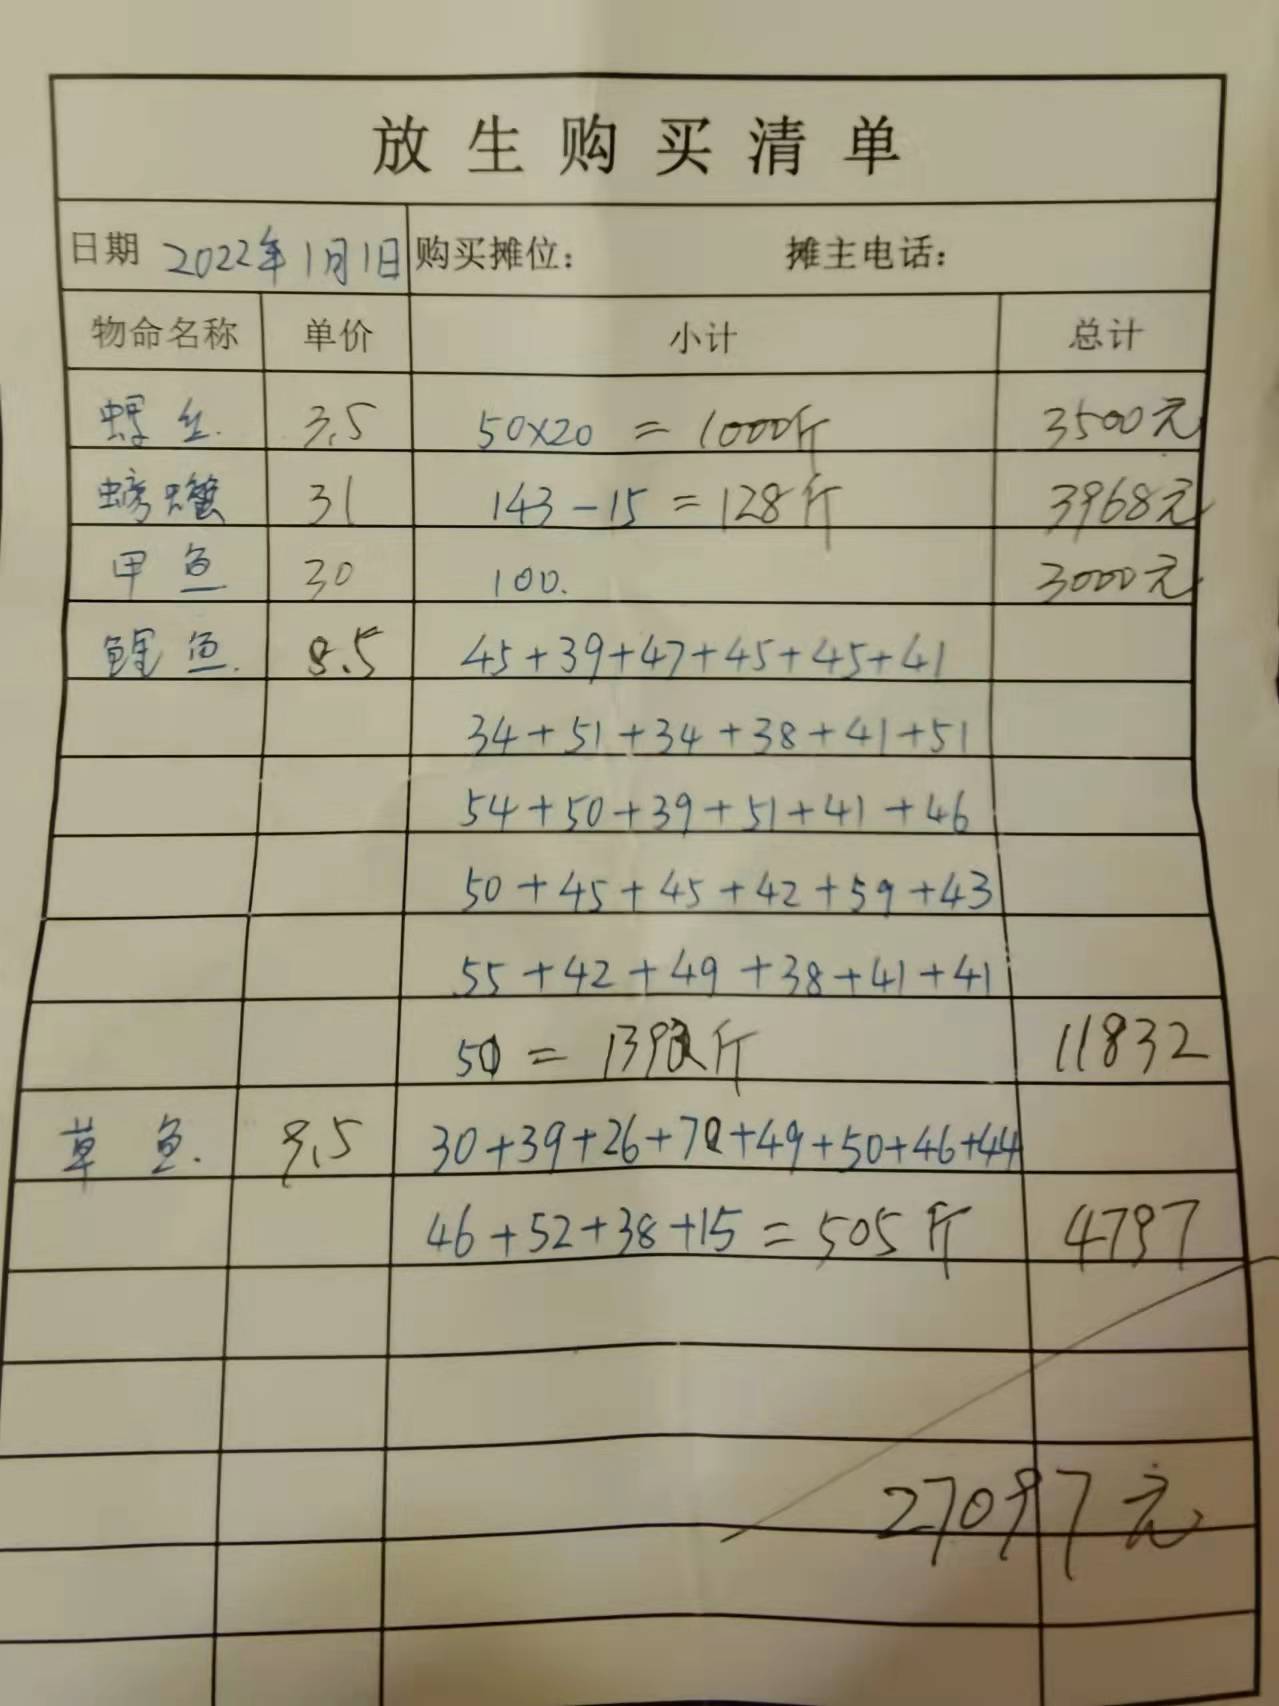 放生购买清单
日期 2022年1月1日 购买摊位: 摊主电话:
物命名称 单价 小计 总计
螺丝. 3.5 50×20 = 1000斤 3500元
螃蟹 31 143-15 = 128斤 3968元
甲鱼 30 100. 3000元
鲤鱼. 8.5 45+39+47+45+45+41
34+51+34+38+41+51
54+50+39+51+41+46
50+45+45+42+59+43
55+42+49+38+41+41
= 斤 11832
草鱼. 9.5 30+39+26+70+49+50+46+44
46+52+38+15 = 505斤 4797
27097元